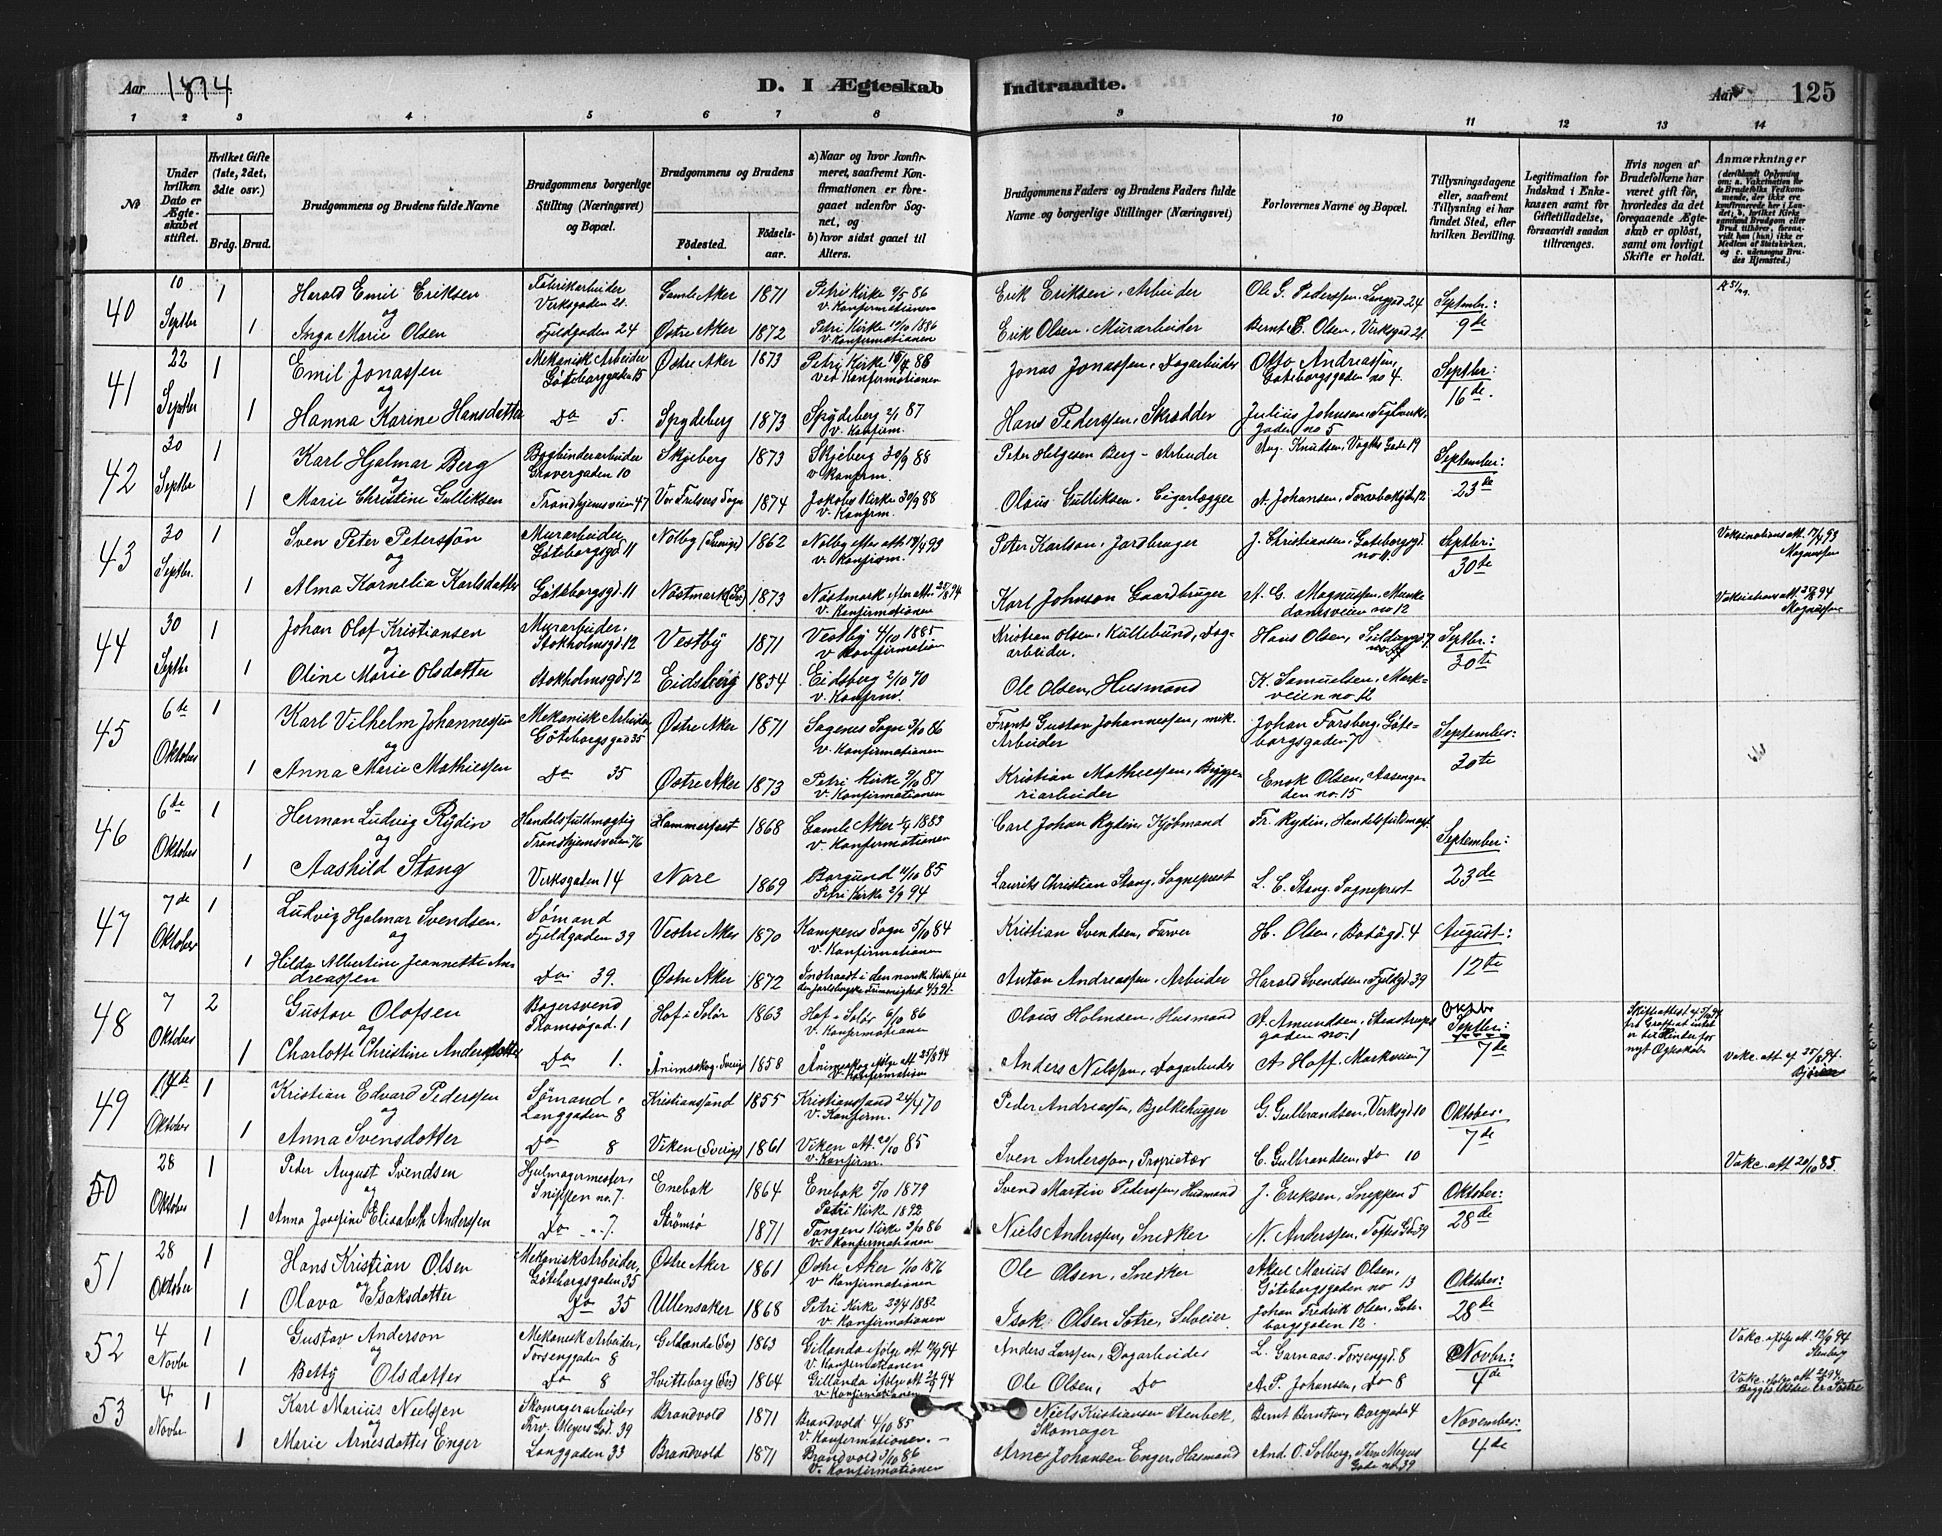 Aar 1894
D. I Ægteskab Indtraadte.
Aar 125
1 2 3 4 5 6 7 8 9 10 11 12 13 14
No
Under hvilken Dato er Ægteskabet stiftet.
Hvilket Gifte (1ste, 2det, 3die osv.)
Brdg. Brud.
Brudgommens og Brudens fulde Navne
Brudgommens borgerlige Stilling (Næringsvei) og Bopæl.
Brudgommens og Brudens
Födested. Födselsaar.
a) Naar og hvor konfirmeret, saafremt Konfirmationen er foregaaet udenfor Sognet, og
b) hvor sidst gaaet til Alters.
Brudgommens Faders og Brudens Faders fulde Navne og borgerlige Stillinger (Næringsvei)
Forlovernes Navne og Bopæl.
Tillysningsdagene eller, saafremt Tillysning ei har fundet Sted, efter hvilken Bevilling.
Legitimation for Indskud i Enkekassen samt for Giftetilladelse, forsaavidt saadan tiltrænges.
Hvis nogen af Brudefolkene har været gift för, hvorledes da det foregaaende Ægteskab er oplöst, samt om lovligt Skifte er holdt.
Anmærkninger
40 10 Septbr 1 Harald Emil Eriksen Fabrikarbeider Virksgaden 21. Gamle Aker 1871 Petri Kirke 9/5 86 v. Konfirmationen Erik Eriksen, Arbeider Ole G. Pederssen, Langgd. 24 Septembr: 9de
og
1 Inga Marie Olsen Fjeldgaden 24 Østre Aker 1872 Petri Kirke 10/10 1886 v. Konfirmationen Erik Olsen, Murarbeider Bernt E. Olsen, Virksgad 21
41 22 Septbr 1 Emil Jonassen Mekanisk Arbeider Göteborgsgaden 15 Østre Aker 1873 Petri Kirke 88 ved Konfirmationen Jonas Jonassen, Dagarbeider Otto Andreassen, Göteborgsgaden no 4. Septbr: 16de
og
1 Hanna Karine Hansdatter Do 5. Spydeberg 1873 Spydeberg 87 v. Konfirm. Hans Pederssen, Skrædder Julius Johnsen, gaden no 5
42 30 Septbr 1 Karl Hjalmar Berg Bogbinderarbeider Gravergaden 10 Skjeberg 1873 Skjeberg 30/9 88 v Konfirm. Peter Helgesen Berg - Arbeider Aug. Knudsen, Vogts Gade 19 September: 23de
og
1 Marie Christine Gulliksen Trondhjemsveien 47 Vor Frelsers Sogn 1874 Jakobs Kirke 30/9 88 v. Konfirm. Olaus Gulliksen, Cigarlægger A. Johansen, 12
43 30 Septbr. 1 Sven Peter Petersson Murarbeider, Göteborgsgd 11 Nolby (Sverige) 1862 Nolby efter att. 93 v. Konfirm. Peter Karlson, Jordbruger J. Christiansen, Göteborgsgd. no 11. Septbr: 30te Vaksinations att. 93 Magnussen
og
1 Alma Kornelia Karlsdatter Göteborgsgd. 11 Nöstmark (Sv) 1873 Nöstmark efter att. 25/8 94 v. Konfirmationen Karl Johnson Gaardbruger A. C. Magnussen, Munkedamsveien no 12 Vaksinations att. 25/8 94 Magnussen
44 30 Septbr 1 Johan Olof Kristiansen Murarbeider, Stokholmsgd. 12 Vestby 1871 Vestby 4/10 1885 v Konfirmation Kristian Olsen, Kullebund, Dagarbeider. Hans Olsen, Septbr: 30te
og
1 Oline Marie Olsdatter Stokholmsgd. 12 Eidsberg 1854 Eidsberg 2/10 70 v. Konfirm. Ole Olsen, Husmand K. Samuelsen, Markveien no 12
45 6te Oktober 1 Karl Vilhelm Johannessen Mekanisk Arbeider, Göteborgsgad 35 Østre Aker 1871 Sagenes Sogn 3/10 86 v. Konfirmationen Frants Gustav Johannessen, mek. Arbeider Johan Forsberg, Göteborgsgaden 7 September: 30te
og
1 Anna Marie Mathiessen Do 35 Østre Aker 1873 Petri Kirke 9/10 87 v. Konfirmationen Kristian Mathiessen, Bryggeriarbeider Enok Olsen, Aasengaden no. 15
46 6te Oktober 1 Herman Ludvig Rydin Handelsfuldmægtig Trondhjemsveien 76 Hammerfest 1868 Gamle Aker 1883 v. Konfirmationen Carl Johan Rydin, Kjöbmand Fr. Rydin, Handelsfuldmægt. September: 23de
og
1 Aashild Stang Virksgaden 14 Nore 1869 Borgund 4/10 85 Petri Kirke 2/9 94 Laurits Christian Stang, Sogneprest L. C. Stang, Sogneprest
47 7de Oktober 1 Ludvig Hjalmar Svendsen. Sømand Fjeldgaden 39 Vestre Aker 1870 Kampens Sogn 5/10 84 v. Konfirmationen Kristian Svendsen, Farver H. Olsen, Bodögd. 4 August: 12te
og
1 Hilda Albertine Jeannette Andreassen Do. 39. Østre Aker 1872 Indtraadt i den norske Kirke fra den Jarlsbergske Frimenighet 4/3 91 Anton Andreassen, Arbeider Harald Svendsen, Fjeldgd. 39
48 7 Oktober 2 Gustav Olofsen Bagersvend Tromsögad. 1 Hof i Solör 1863 Hof i Solör 6/10 86 v. Konfirmationen Olaus Holmsen, Husmand A. Amundsen, gaden no. 1 Oktbr Septbr: 7de Skifteattest
og
1 Charlotte Christine Andersdotter Do 1. Ånimskog, Sverige 1858 Ånimskog ifölge att 25/8 94 v. Konfirmation Anders Nilssen, Dagarbeider A. Hoff, Markveien 7 Vakc. att. af 25/8 94.
49 14de Oktober 1 Kristian Edvard Pederssen Sømand, Langgaden 8 Kristianssand 1855 Kristianssand 24/4 70 v. Konfirm. Peder Andreassen, Bjelkehugger G. Gulbrandsen, Virksgd 10 Oktober: 7de
og
1 Anna Svensdotter Do 8 Viken (Sverige) 1861 Viken att. 20/10 85 v. Konfirm. Sven Andersson, Proprietær C. Gulbrandsen, Do 10 Vakc. att. 20/10 85.
50 28 Oktober 1 Peder August Svendsen Hjulmagermester, Snippen no. 7. Enebak 1864 Enebak 5/10 1879 Petri Kirke 1892 Svend Martin Pederssen, Husmand J. Eriksen, Sneppen 5 Oktober: 28de
og
1 Anna Josefine Elisabeth Anderssen Do " 7. Strömsö 1871 Tangens Kirke 3/10 86 v. Konfirmationen Niels Anderssen, Snedker N. Anderssen, Toftes Gd 39
51 28 Oktober 1 Hans Kristian Olsen Mekanisk Arbeider, Göteborgsgaden 35 Østre Aker 1861 Østre Aker 1876 v Konfirmationen Ole Olsen, Snedker Aksel Marius Olsen, Göteborgsgaden no 13 Oktober: 28de
og
1 Olava Isaksdatter Do 35 Ullensaker 1868 Petri Kirke 1882 v. Konfirmationen Isak Olsen Sotre, Selveier Johan Fredrik Olsen, Göteborgsgaden 12.
52 4 Novbr 1 Gustav Anderson Mekanisk Arbeider, Torsenggaden 8 Gillanda (Sv) 1863 Gillanda ifölge att 12/9 94 v. Konfirmationen Anders Larssen, Dagarbeider L. Garnaas, Torsenggd. 8 Novbr: 4de Vakc. ifölge att. 12/9 94
og
1 Betty Olsdatter Do 8 Hvitteborg (Sv) 1864 Gillanda ifölge att 94 v. Konfirmationen Ole Olsen, Do A. P. Johansen, Do 8
53 4 Novbr 1 Karl Marius Nielsen Skomagerarbeider Thv. Meyers Gd. 39 Brandvold 1871 Brandvold 4/10 85 v. Konfirmationen. Niels Kristiansen Stenbek, Skomager Bernt Berntsen, Borggada 4 November: 4de
og
1 Marie Arnesdatter Enger Langgaden 33 Brandvold 1871 Brandvold 3/10 86 v. Konfirmationen Arne Johansen Enger, Husmand And. O. Solberg, Thv Meyers Gade no. 39